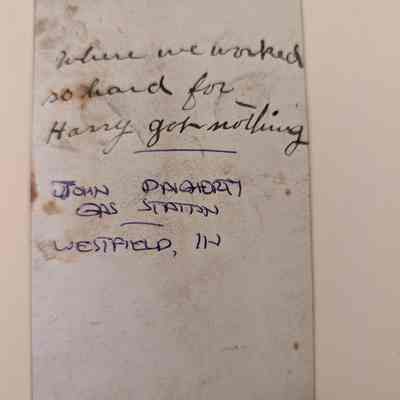 Where we worked
so hard for
Harry got nothing
JOHN DAUGHERTY
GAS STATION
WESTFIELD, IN